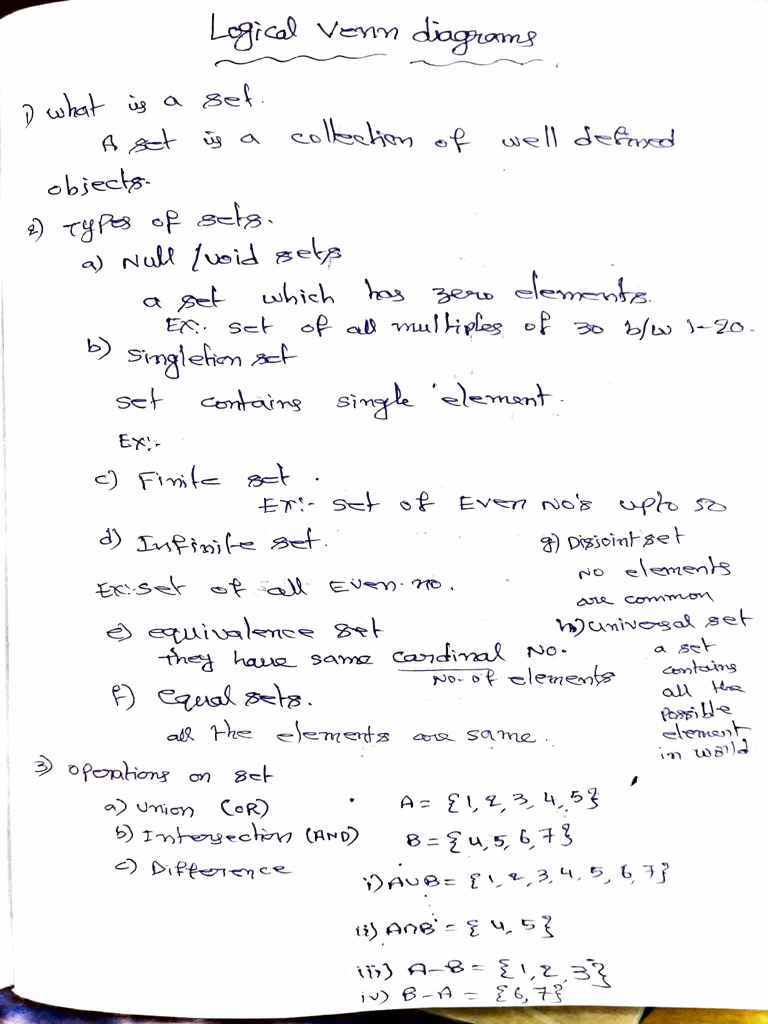 Logical Venn diagrams
1) what is a set.
A set is a collection of well defined
objects.
2) Types of sets.
a) Null / void sets
a set which has zero elements.
Ex:- set of all multiples of 30 b/w 1-20.
b) Singletion set
set contains single element.
Ex:-
c) Finite set.
Ex:- set of Even No's upto 50
d) Infinite set.
Ex:- set of all Even no.
e) equivalence set
they have same cardinal No.
No. of elements
f) equal sets.
all the elements are same.
g) Disjoint set
No elements
are common
h) universal set
a set
contains
all the
possible
element
in world
3) operations on set
a) Union (OR)
b) Intersection (AND)
c) Difference
A = {1, 2, 3, 4, 5}
B = {4, 5, 6, 7}
i) A∪B = {1, 2, 3, 4, 5, 6, 7}
ii) A∩B = {4, 5}
iii) A-B = {1, 2, 3}
iv) B-A = {6, 7}